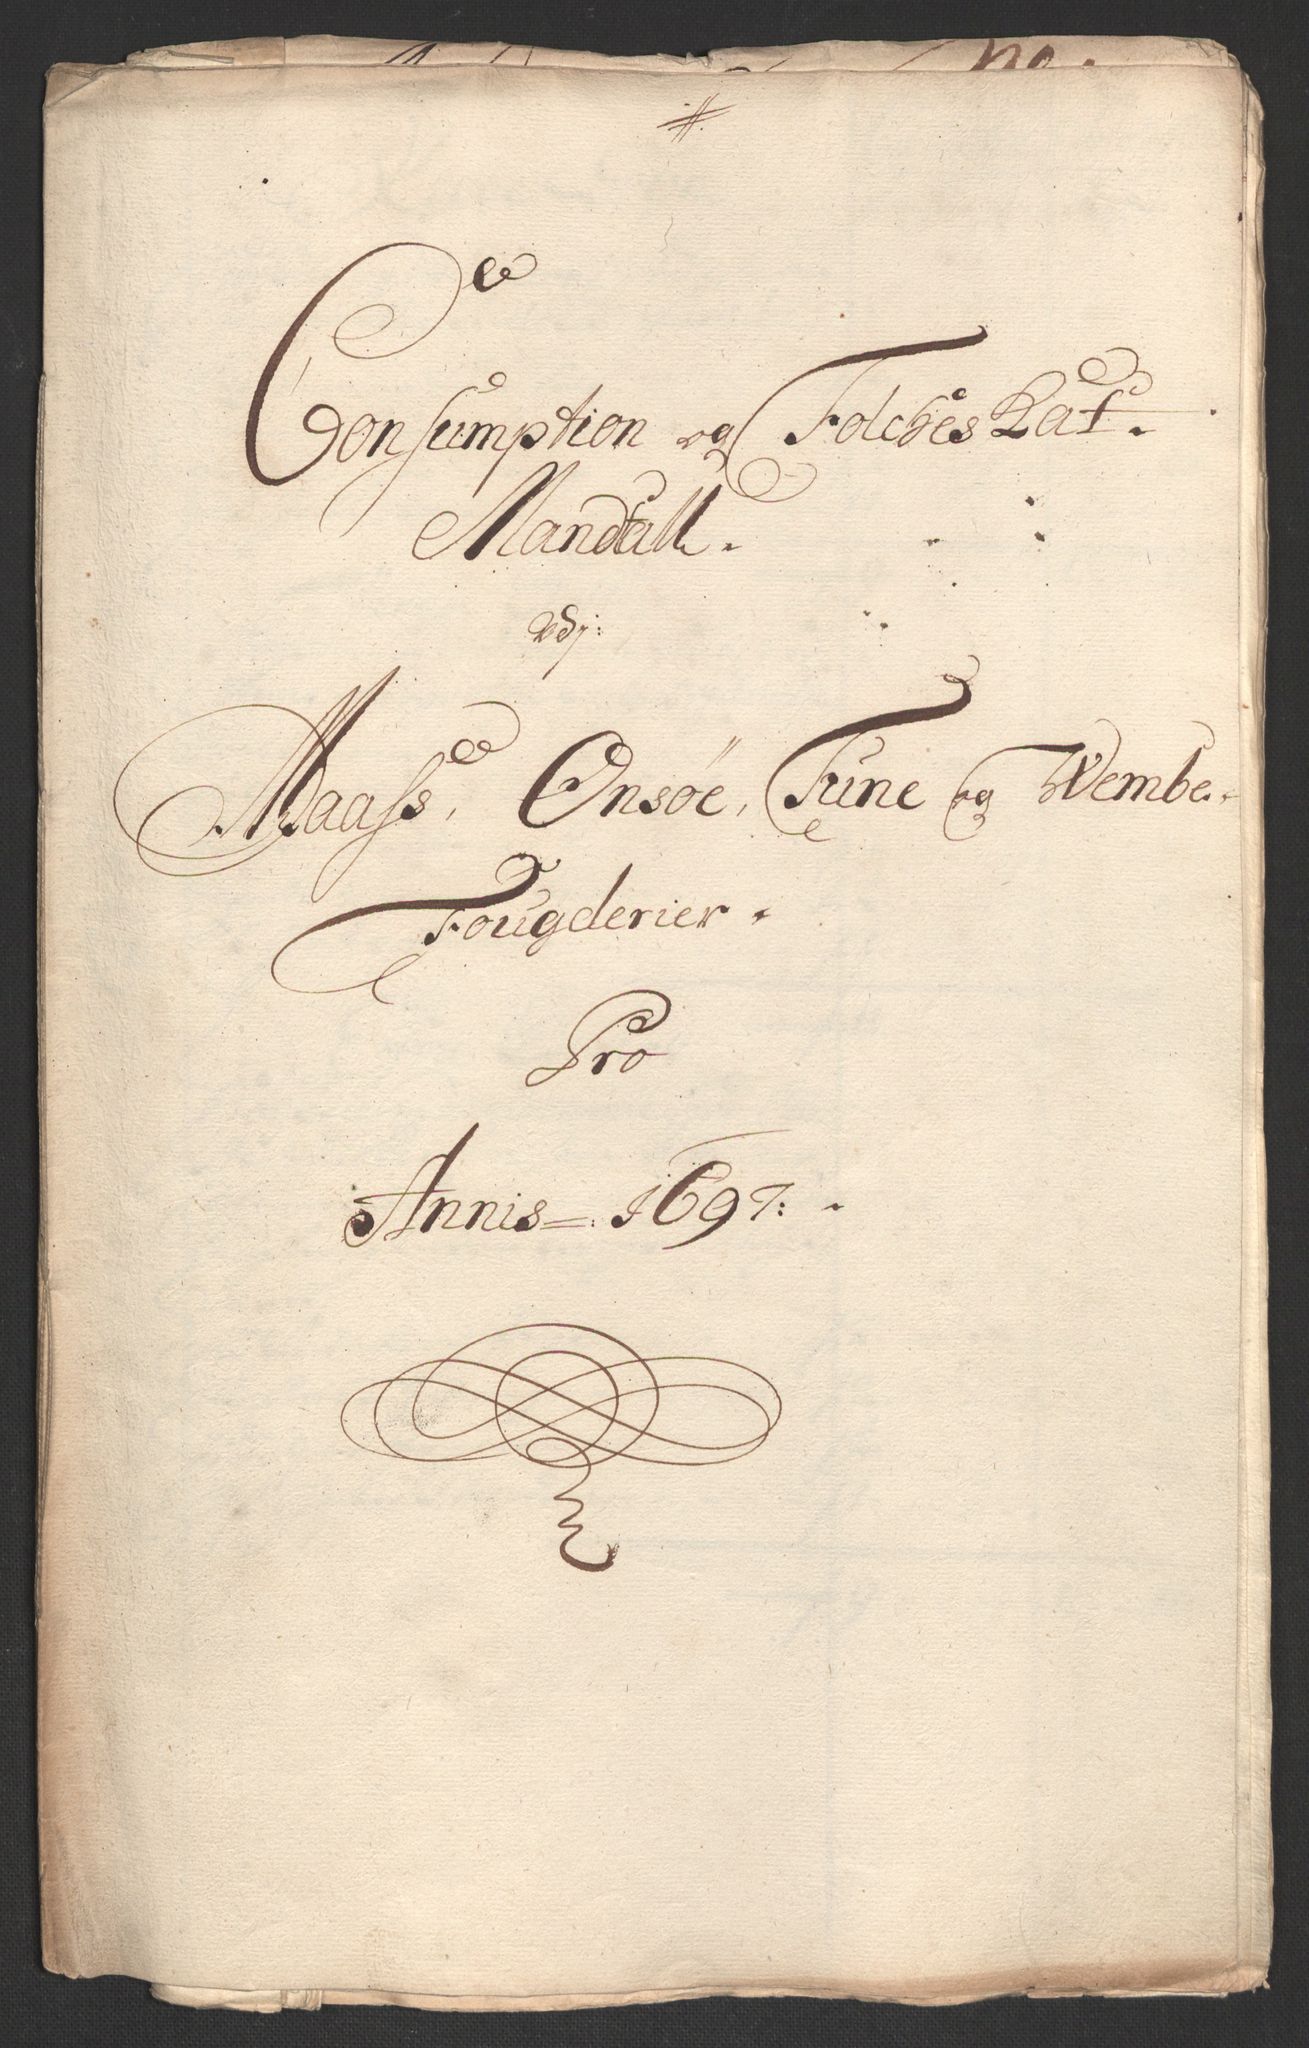 Consumption og Folches Kat.
Mandtall.
udj:
Maass, Onsøe, Tune og Wembe.
Fougderier.
Pro
Annis=: 1697: